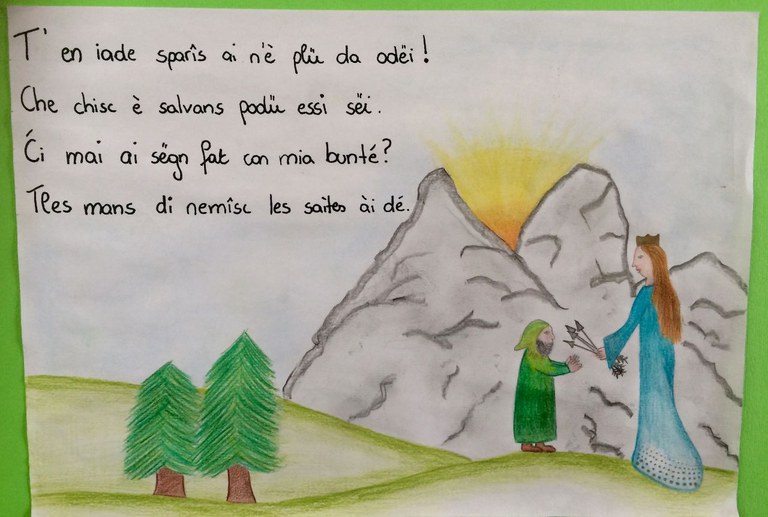 T' en iade sparîs ai n'è plü da odëi!
Che chisc è salvans podü essi sëi.
Ći mai ai sëgn fat con mia bunté?
Tles mans di nemîsc les saites ài dé.